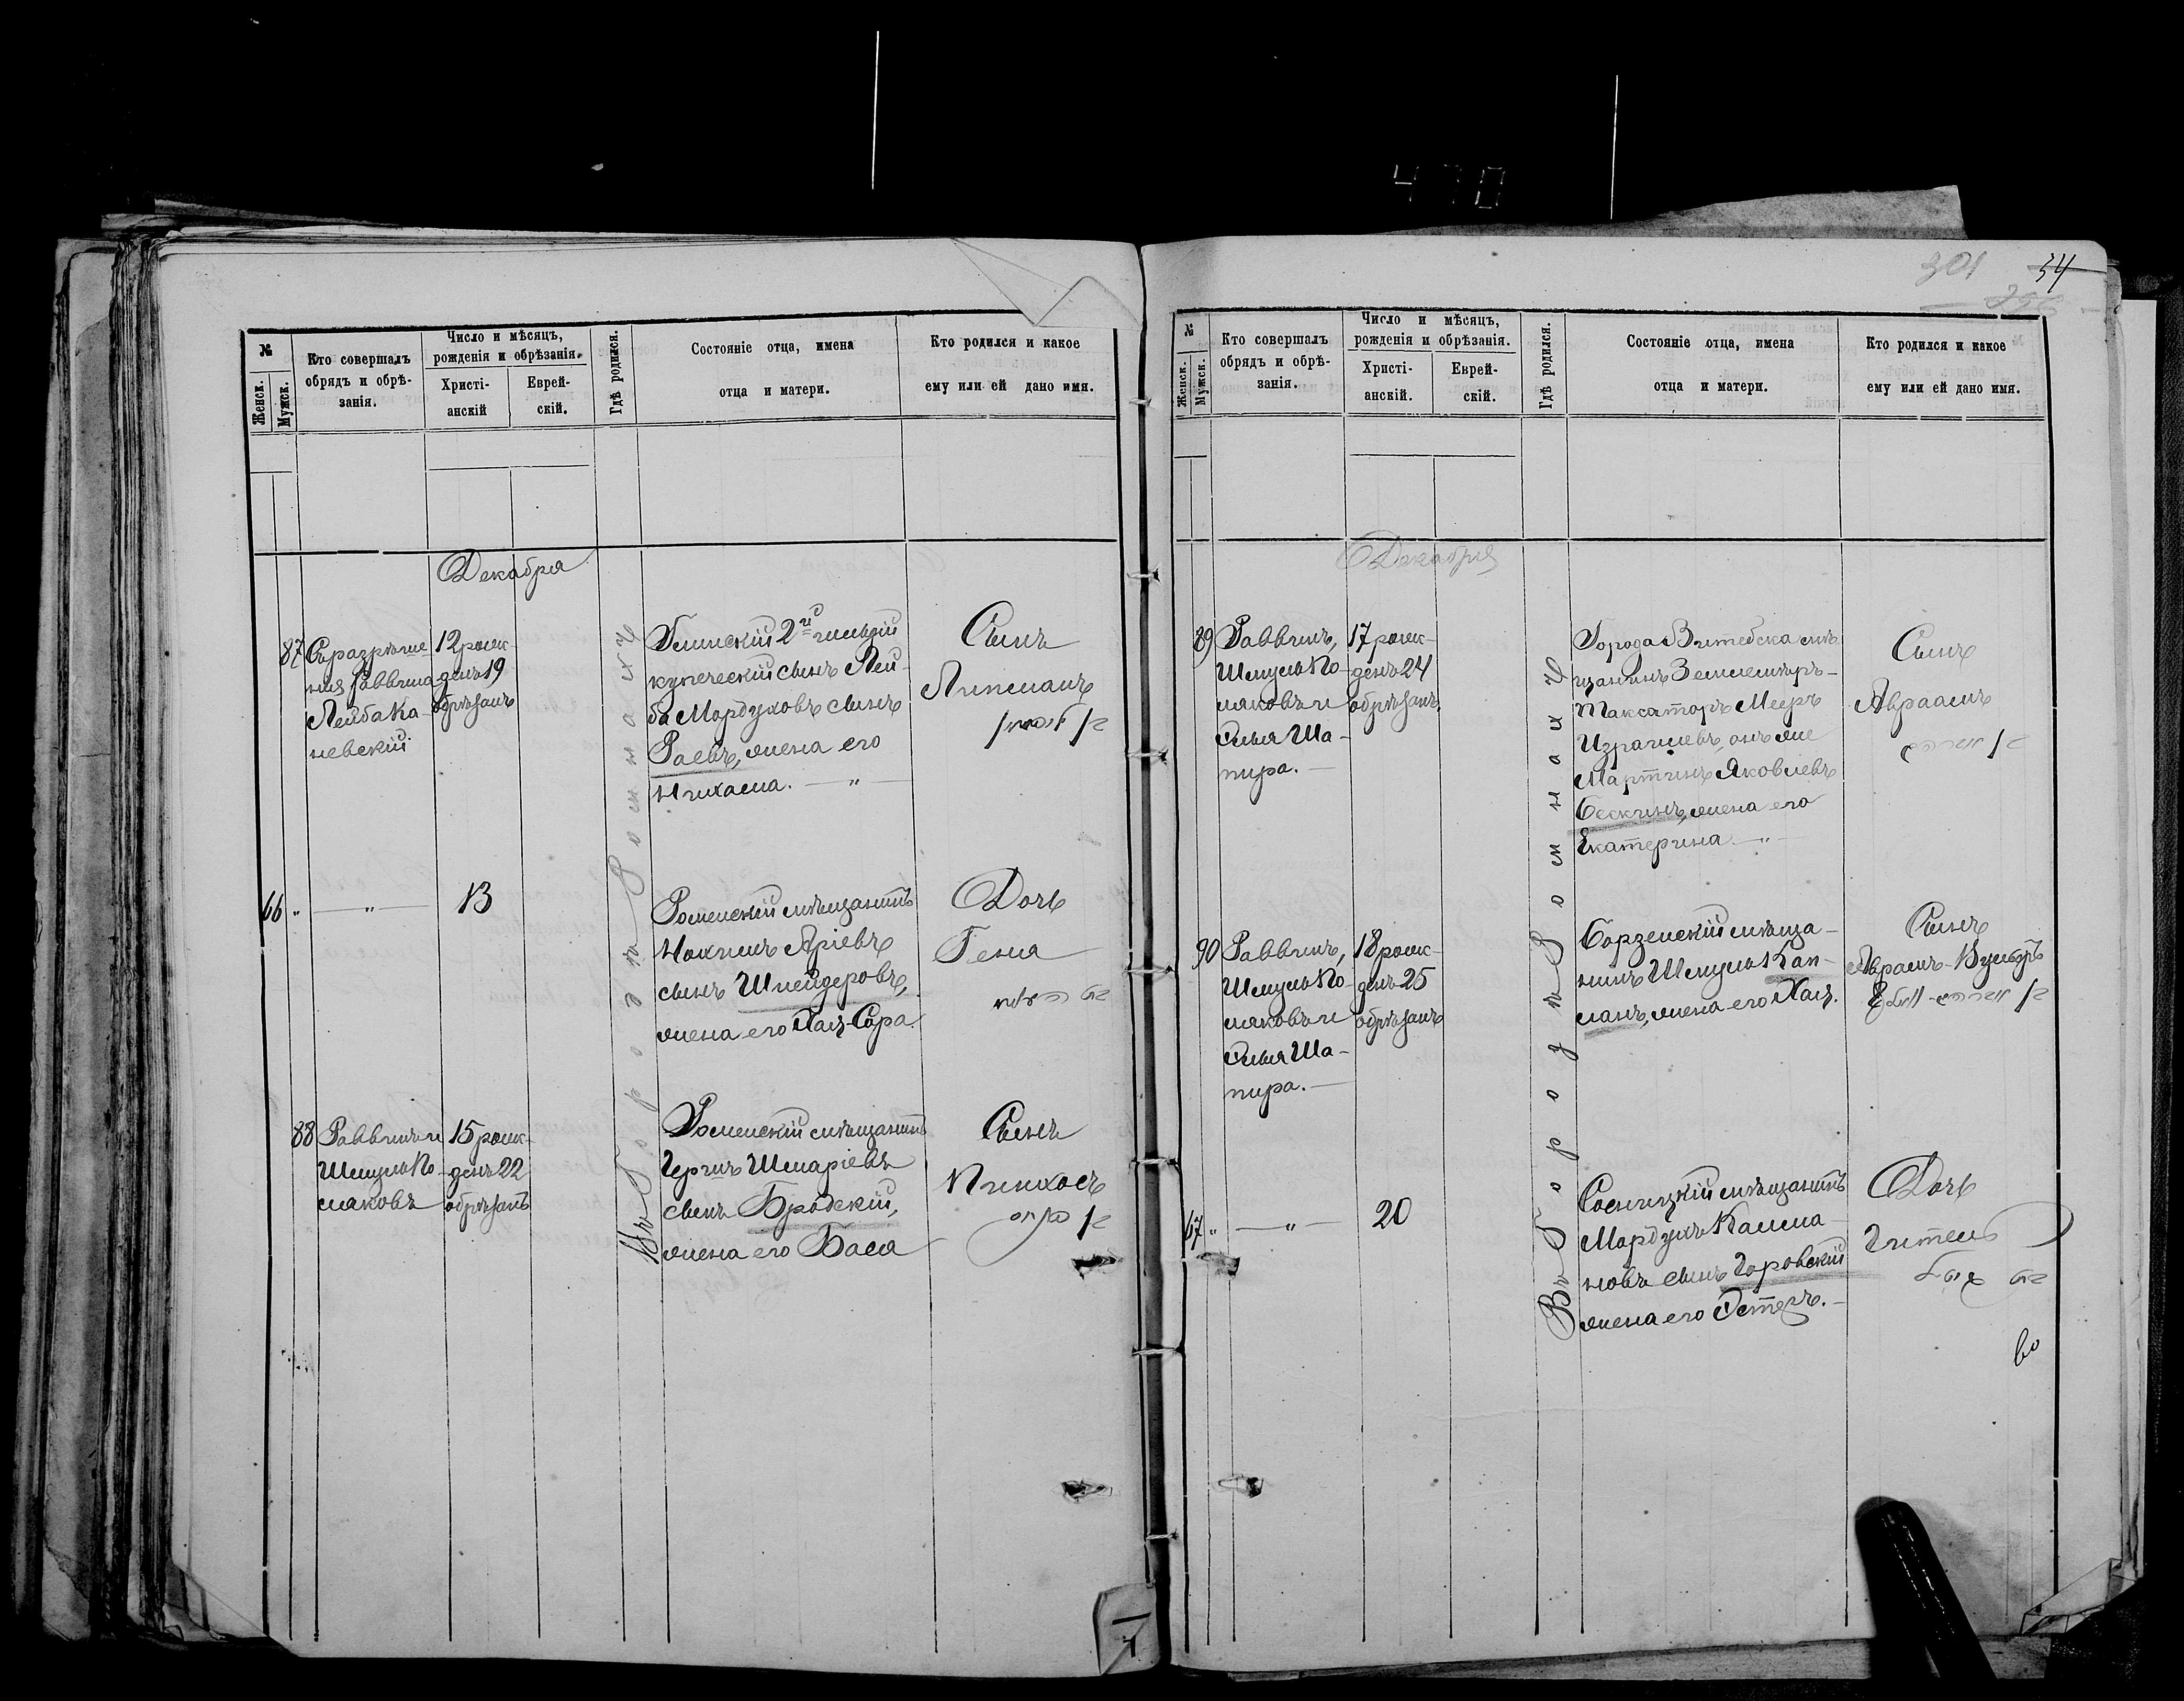 470
301
54
№
Женск.
Мужск.
Кто совершалъ
обрядъ и обрѣ-
занія.
Число и мѣсяцъ,
рожденія и обрѣзанія.
Христі-
анскій
Еврей-
скій.
Гдѣ родился.
Состояніе отца, имена
отца и матери.
Кто родился и какое
ему или ей дано имя.
Декабря
Въ Городѣ Ромнахъ
87
Съ разрѣше
нія Раввина
Лейба Ка-
невскій
12 рож-
денъ 19
обрѣзанъ
2й гильдіи
купеческій сынъ Лей-
ба Мордуховъ сынъ
Раевъ, жена его
Нихама. — " —
Сынъ
Липманъ
66 "
— " —
13
Роменскій мѣщанинъ
Нохимъ Аріевъ
сынъ Шнейдеровъ,
жена его Хая-Сора
Дочь
Геня
88
Раввинъ и
Шмуль По-
ляковъ
15 рож-
денъ 22
обрѣзанъ
Роменскій мѣщанинъ
Герцъ Шмаріевъ
сынъ Бродскій,
жена его Бася
Сынъ
Пинхосъ
№
Женск.
Мужск.
Кто совершалъ
обрядъ и обрѣ-
занія.
Число и мѣсяцъ,
рожденія и обрѣзанія.
Христі-
анскій.
Еврей-
скій.
Гдѣ родился.
Состояніе отца, имена
отца и матери.
Кто родился и какое
ему или ей дано имя.
Декабря
Въ Городѣ Ромнахъ
89
Раввинъ,
Шмуль По-
ляковъ и
Илья Ша-
пира. —
17 рож-
денъ 24
обрѣзанъ
Города Витебска мѣ
щанинъ Землемѣръ-
Таксаторъ Мееръ
Израилевъ, онъ же
Мартинъ Яковлевъ
Бескинъ, жена его
Екатерина — " —
Сынъ
Авраамъ
90
Раввинъ,
Шмуль По-
ляковъ и
Илья Ша-
пира. —
18 рож-
денъ 25
обрѣзанъ
Борзенскій мѣща-
нинъ Шмуль Кап-
ланъ, жена его Хая.
Сынъ
Аврамъ-Вульфъ
67 "
— " —
20
Сосницкій мѣщанинъ
Мордухъ Калма-
новъ сынъ Горовскій
жена его Эстеръ. —
Дочь
Гитель